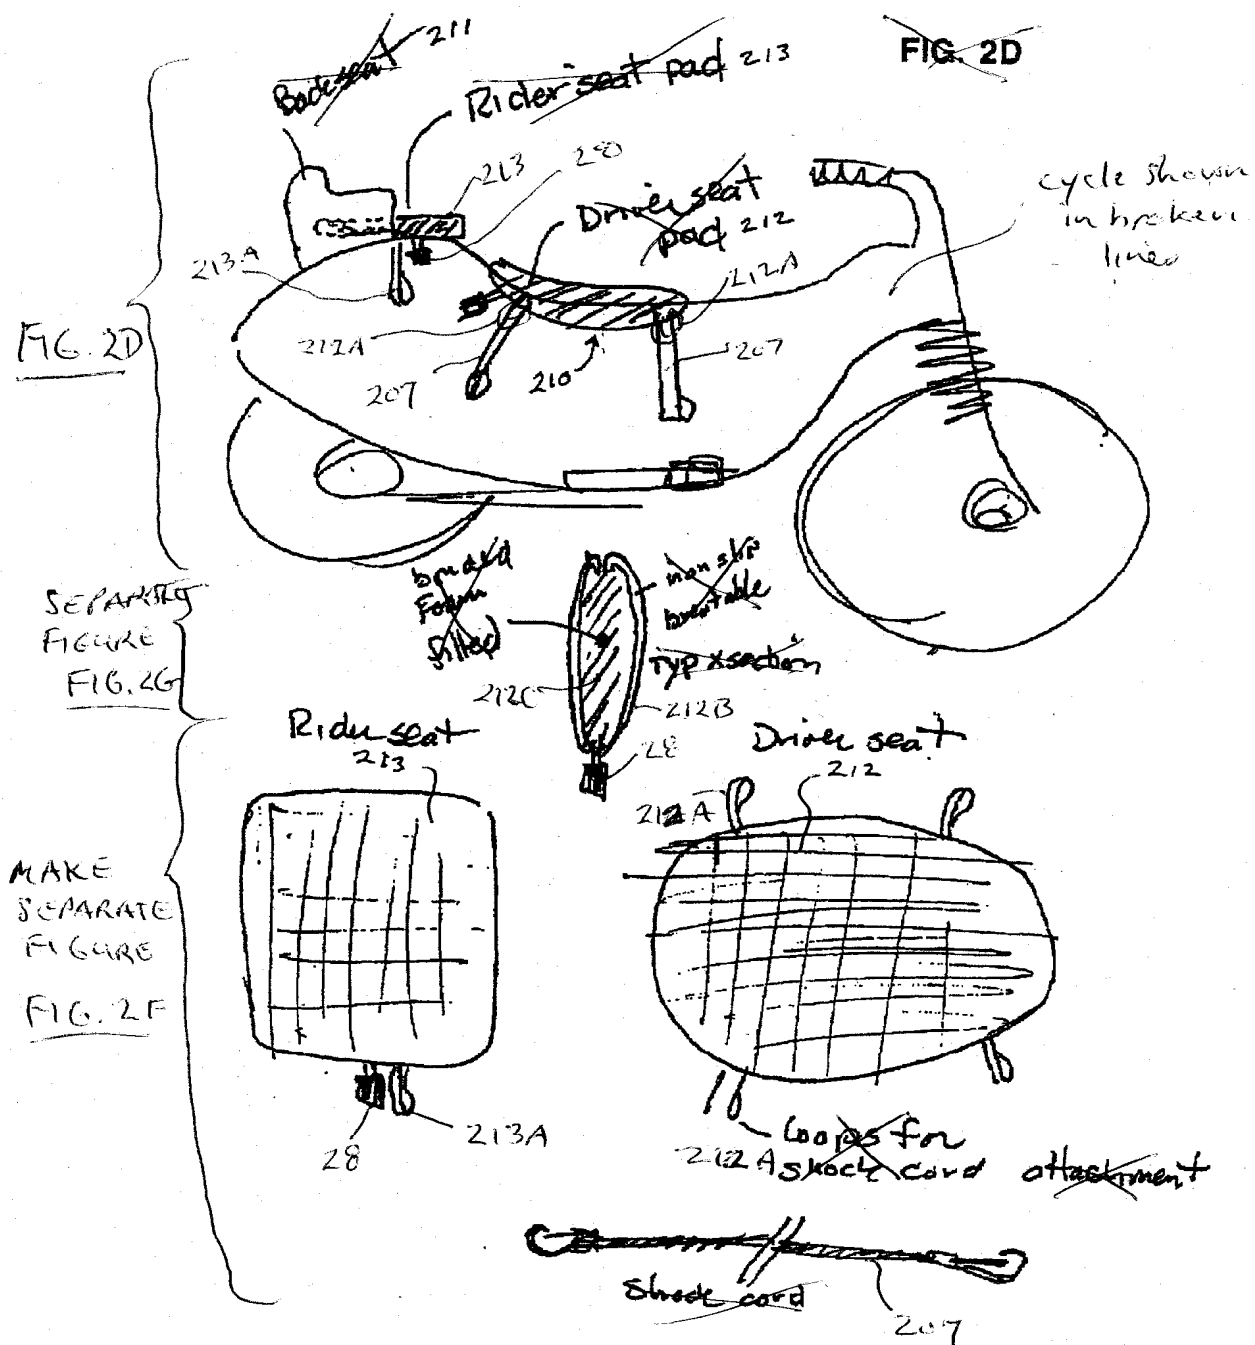 Back seat 211
Rider seat pad 213
FIG. 2D
213
28
Driver seat
pad 212
cycle shown
in broken
lines
213A
212A
FIG. 2D
212A
207
210
207
SEPARATE
FIGURE
FIG. 2G
Foam
filled
non slip
breatable
typ xsection
212C
212B
28
Rider seat
213
Driver seat
212
212A
MAKE
SEPARATE
FIGURE
FIG. 2F
28
213A
212A
Loops for
shock cord attachment
Shock cord
207